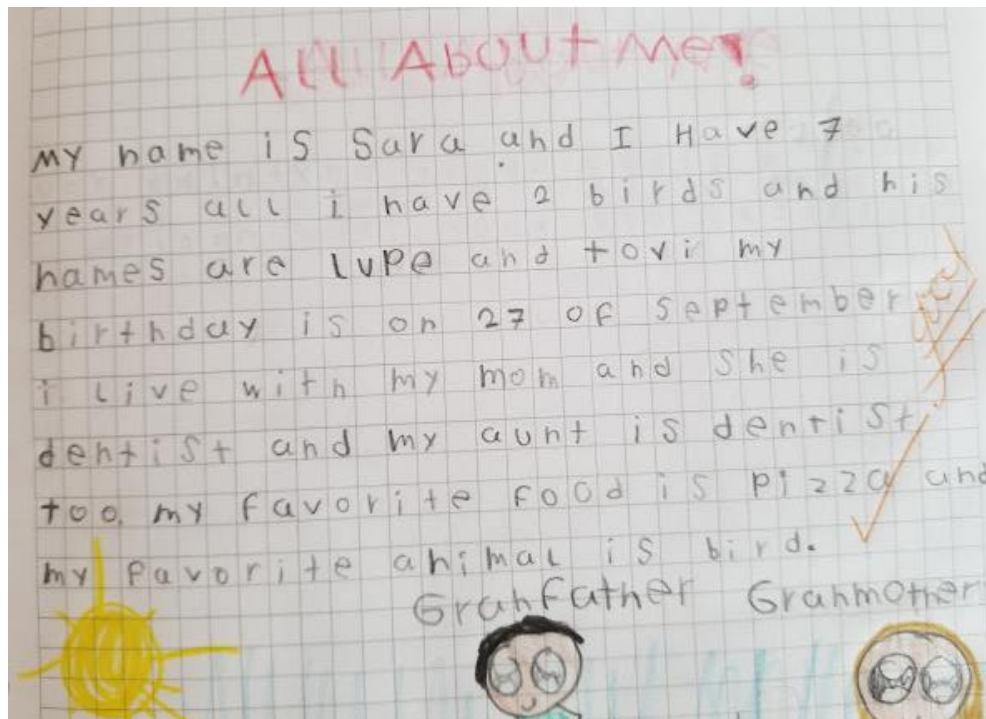 All About Me!
My name is Sara and I Have 7
years all i have 2 birds and his
names are lupe and tovi my
birthday is on 27 of september
i live with my mom and she is
dentist and my aunt is dentist
too. my favorite food is pizza and
my favorite animal is bird.
Granfather Granmother